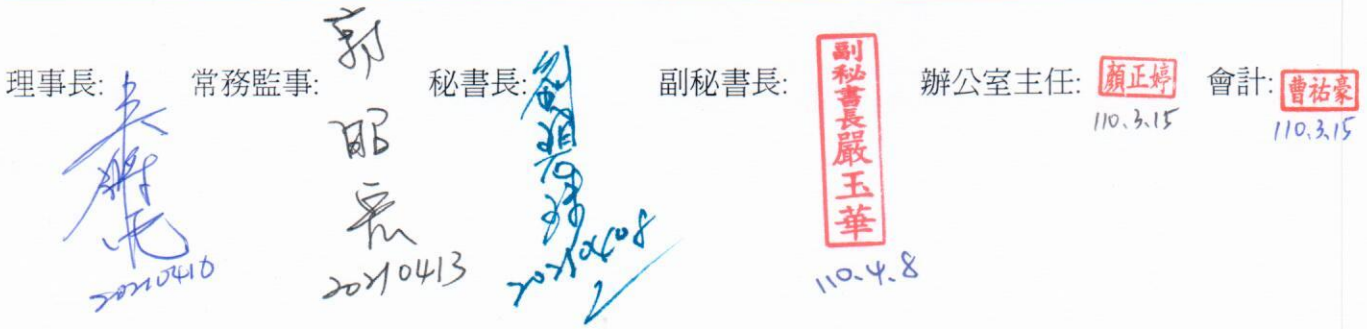 理事長:
20210410
常務監事: 郭
昭
宏
20210413
秘書長:
20210408
副秘書長: 副秘書長嚴玉華
110.4.8
辦公室主任: 顏正婷
110.3.15
會計: 曹祐豪
110.3.15